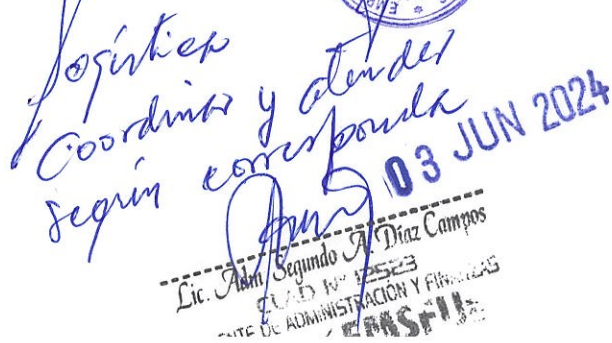 Logística
Coordinar y atender
según corresponda
03 JUN 2024
Lic. Adm Segundo A. Díaz Campos
CLAD Nº 12523
NTE DE ADMINISTRACIÓN Y FINANZAS